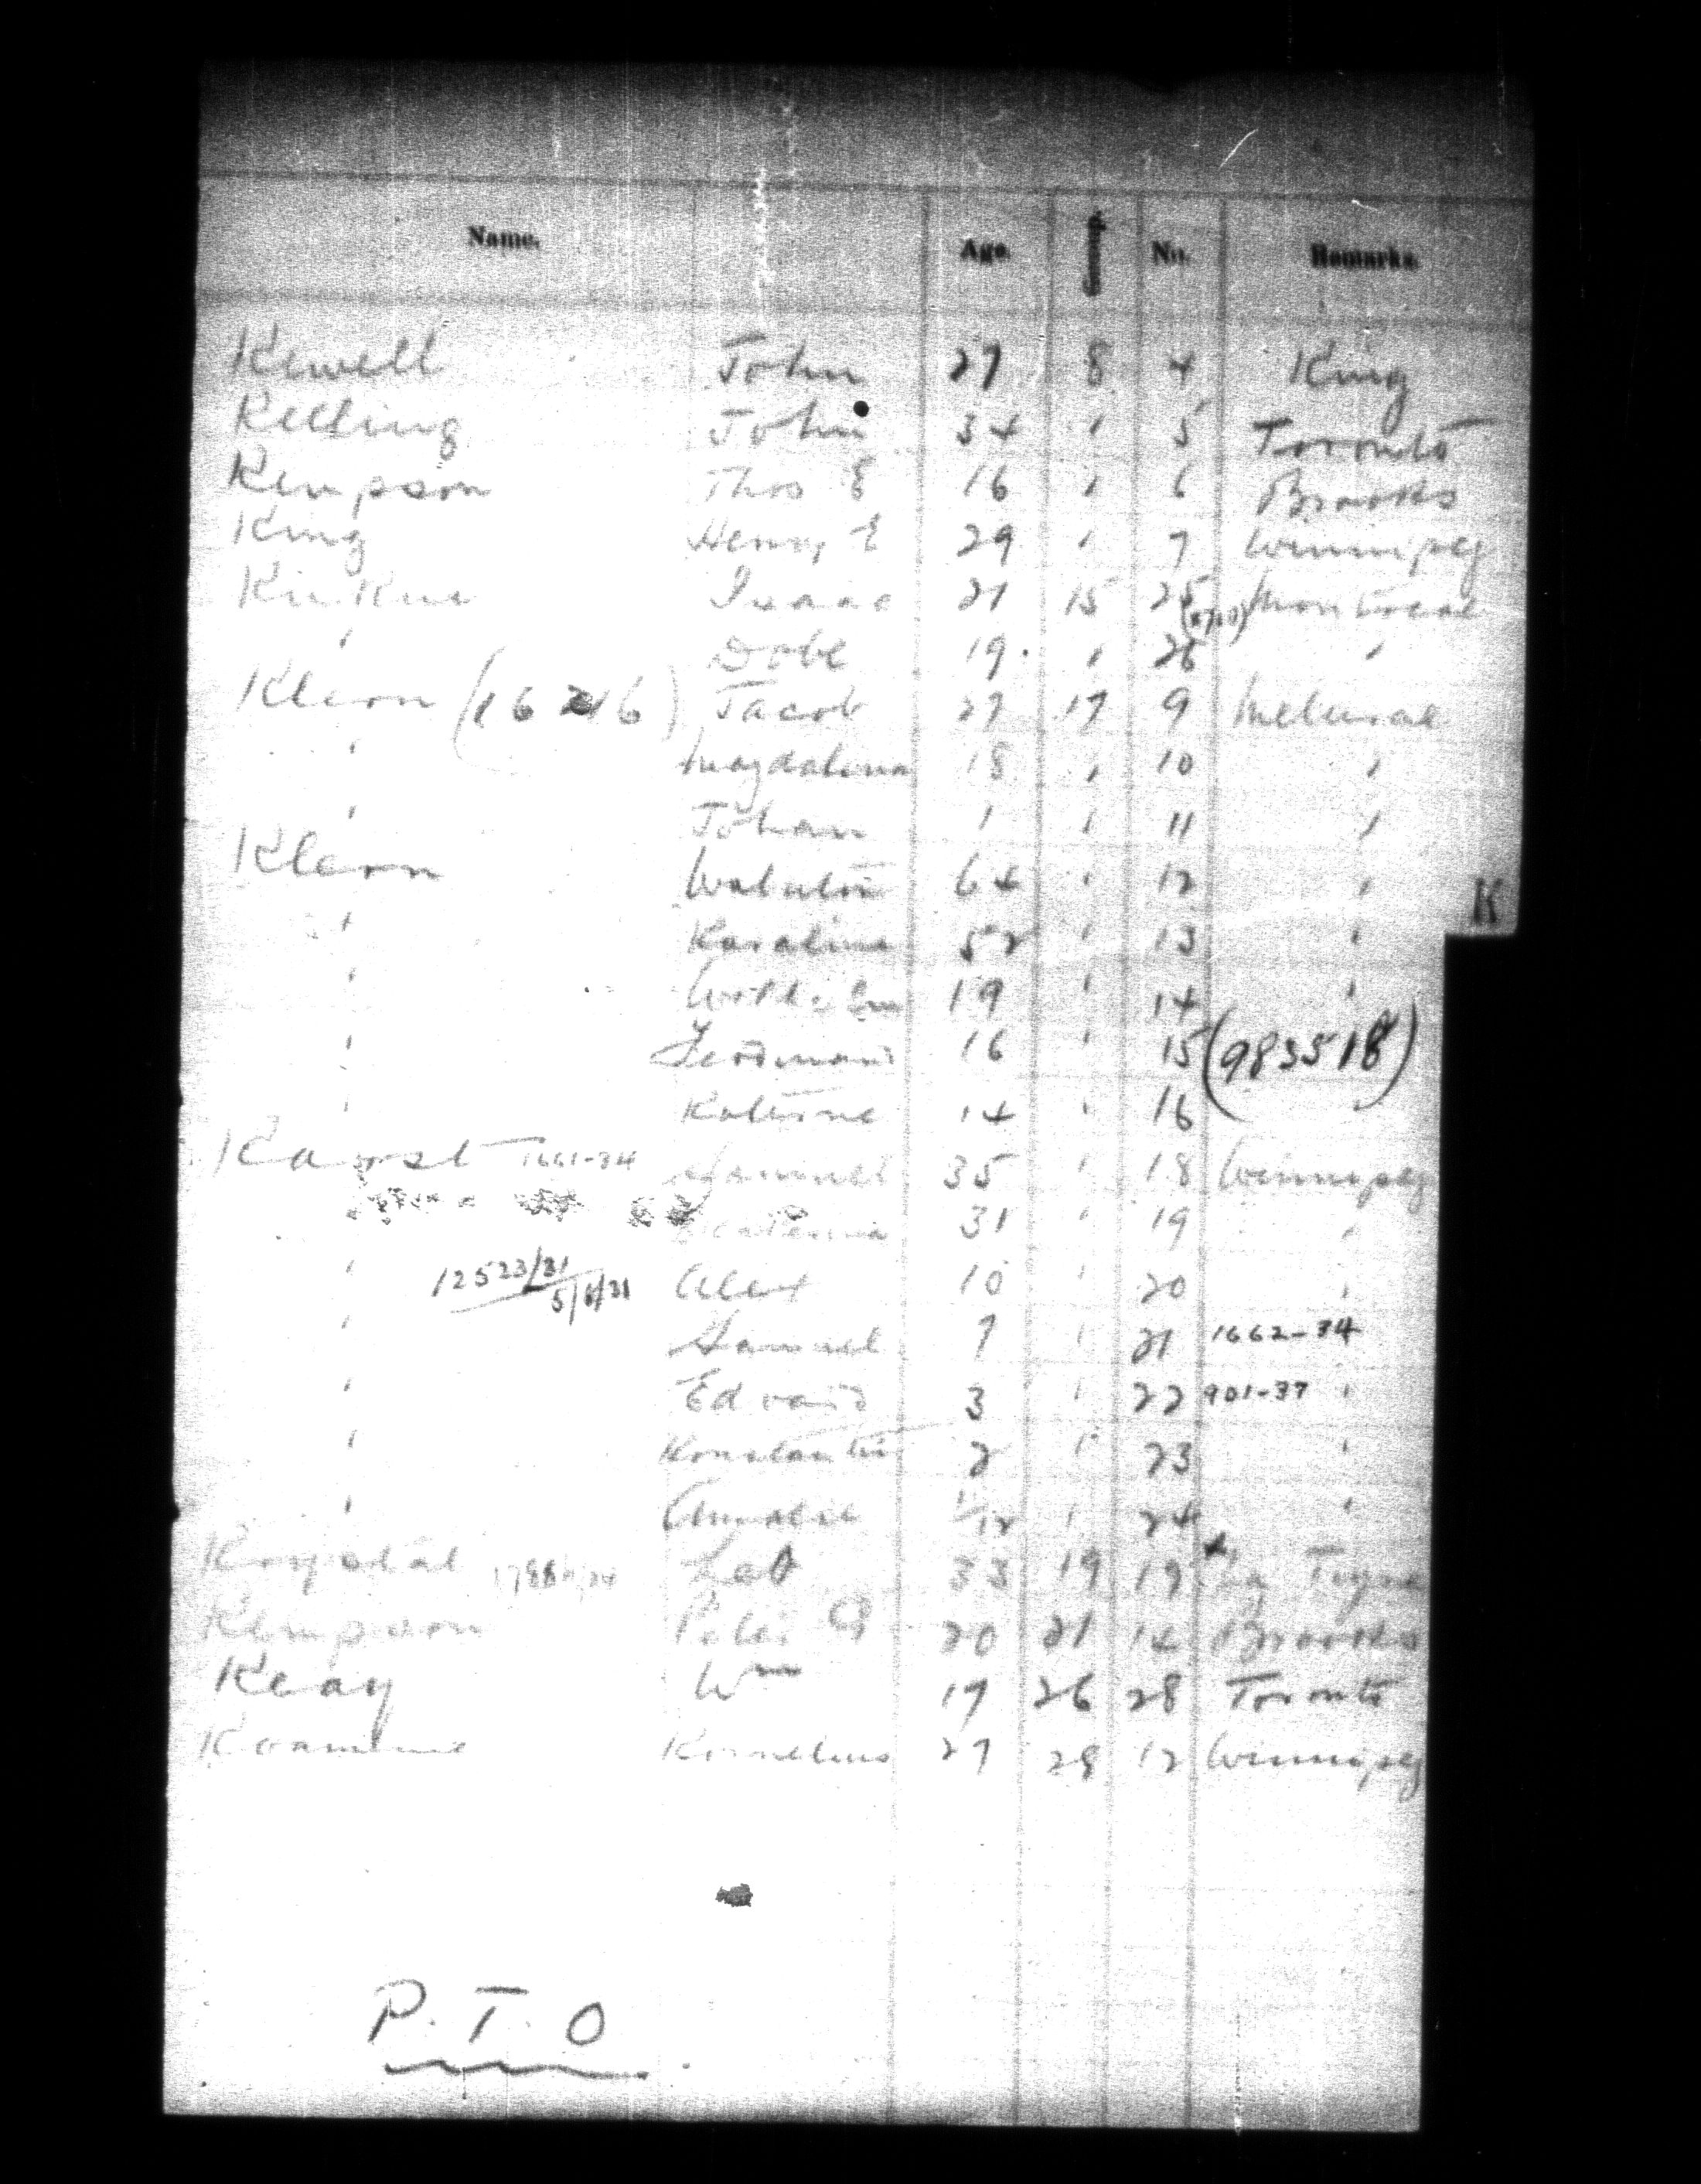 Name. Age. No. Remarks.
Kewell John 27 8 4 King
Kelling John 34 " 5 Toronto
Kempson Thos E 16 " 6 Brooks
King Henry E 29 " 7 Winnipeg
Isaac 21 15 25 Montreal
" Dobe 19 " 26 "
Klein (16216) Jacob 27 17 9
" Magdalina 18 " 10 "
" Johan 1 " 11 "
Klein 64 " 12 "
K
" Karaline 52 " 13 "
" 19 " 14 "
" Ferdinand 16 " 15 (983518)
" Katerine 14 " 16 "
Karst 1661-34 Samuel 35 " 18 Winnipeg
" 31 " 19 "
" 12523/31 5/6/31 Alex 10 " 20 "
" Samuel 7 " 21 1662-34
" Edvard 3 " 22 901-37 "
" Konstantin 2 " 23 "
" Amalie 1/12 " 24 "
Krystal 33 19 19
Kempson Peter G 20 21 14 Brooks
Keay Wm 17 26 28 Toronto
Kornelius 27 28 12 Winnipeg
P.T.O